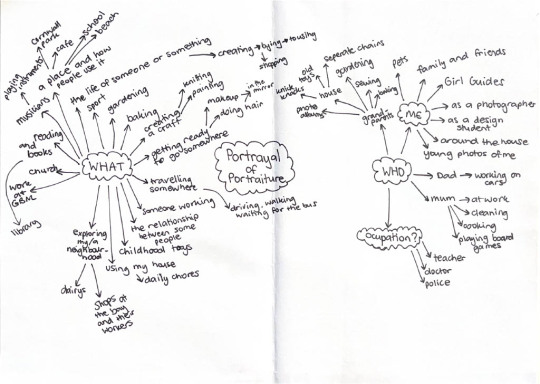 Portrayal
of
Portraiture
WHAT
a place and how
people use it
cornwall
park
cafe
school
beach
the life of someone or something
creating
buying
tousling
shopping
musicians
playing
instruments
sport
gardening
baking
creating
a craft
knitting
painting
getting ready
to go somewhere
makeup
in the
mirror
doing hair
travelling
somewhere
driving, walking
waiting for the bus
someone working
the relationship
between some
people
childhood toys
using my house
daily chores
exploring
my/a
neighbour-
hood
dairys
shops at
the bay
and their
workers
work
at
GBM
church
reading
and
books
library
WHO
ME
pets
family and friends
Girl Guides
as a photographer
as a design
student
around the house
young photos of me
grand-
parents
baking
sewing
gardening
house
seperate chairs
old
toys
knick knacks
photo
albums
Dad
working on
cars
mum
at work
cleaning
cooking
playing board
games
Ocupation?
teacher
doctor
police